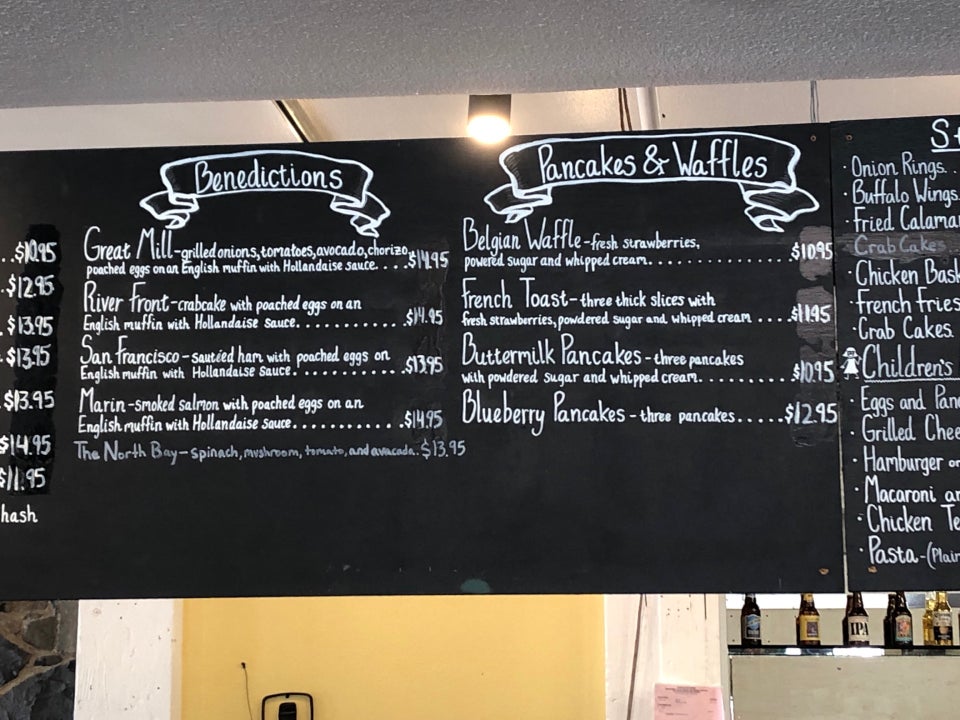 ...$10.95
.$12.95
.$13.95
.$13.95
.$13.95
$14.95
$11.95
hash
Benedictions
Great Mill-grilled onions, tomatoes, avocado, chorizo,
poached eggs on an English muffin with Hollandaise sauce....$14.95
River Front-crabcake with poached eggs on an
English muffin with Hollandaise Sauce.............$14.95
San Francisco-sautéed ham with poached eggs on
English muffin with Hollandaise Sauce.............$13.95
Marin-smoked salmon with poached eggs on an
English muffin with Hollandaise Sauce.............$14.95
The North Bay-spinach, mushroom, tomato, and avacada..$13.95
Pancakes & Waffles
Belgian Waffle-fresh strawberries,
powered sugar and whipped cream..................$10.95
French Toast-three thick slices with
fresh strawberries, powdered sugar and whipped cream.....$11.95
Buttermilk Pancakes-three pancakes
with powdered sugar and whipped cream...........$10.95
Blueberry Pancakes-three pancakes.....$12.95
St
· Onion Rings..
· Buffalo Wings.
· Fried Calamar
Crab Cakes
· Chicken Bask
· French Fries
· Crab Cakes.
Children's
· Eggs and Panc
· Grilled Chee
· Hamburger or
· Macaroni an
· Chicken Te
· Pasta-(Plain
IPA